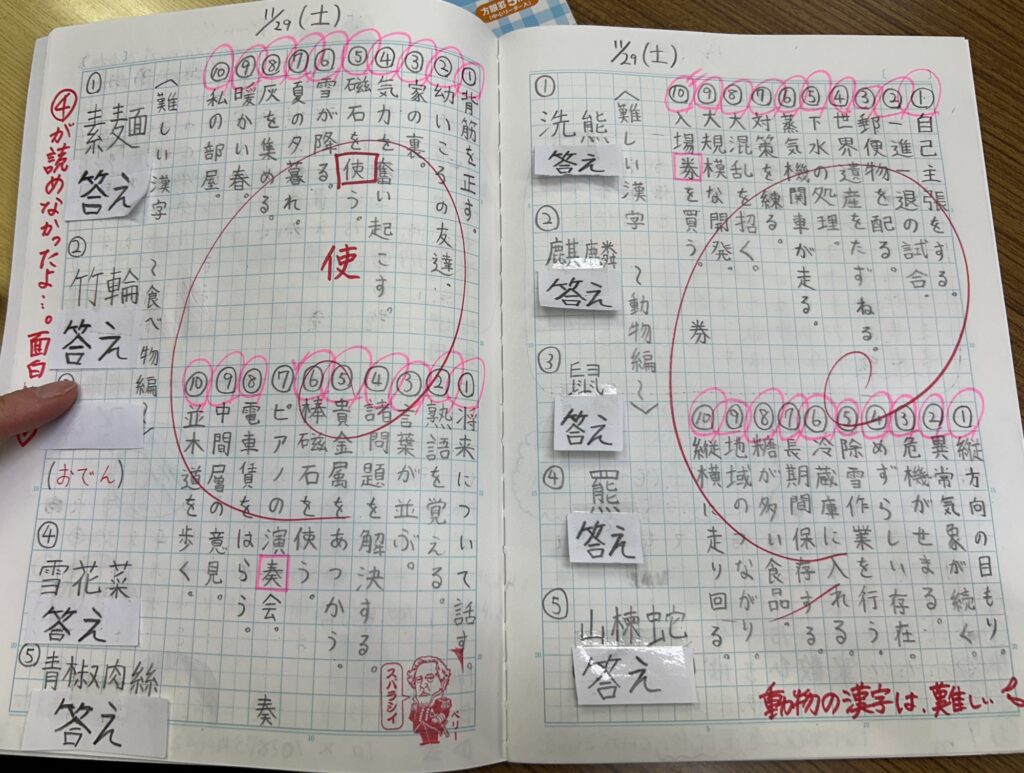 11/29(土)
①自己主張をする。
②一進一退の試合。
③郵便物を配る。
④世界遺産をたずねる。
⑤下水の処理。
⑥蒸気機関車が走る。
⑦対策を練る。
⑧大混乱を招く。
⑨大規模な開発。
⑩入場券を買う。
券
①縦方向の目もり。
②異常気象が続く。
③危機がせまる。
④めずらしい存在。
⑤除雪作業を行う。
⑥冷蔵庫に入れる。
⑦長期間保存する。
⑧糖が多い食品。
⑨地域のつながり。
⑩縦横に走り回る。
〈難しい漢字 〜動物編〜〉
①洗熊
答え
②麒麟
答え
③鼠
答え
④羆
答え
⑤山楝蛇
答え
動物の漢字は、難しい
11/29(土)
①背筋を正す。
②幼いころの友達。
③家の裏。
④気力を奮い起こす。
⑤磁石を使う。
⑥雪が降る。
⑦夏の夕暮れ。
⑧灰を集める。
⑨暖かい春。
⑩私の部屋。
使
①将来について話す。
②熟語を覚える。
③言葉が並ぶ。
④諸問題を解決する。
⑤貴金属をあつかう。
⑥棒磁石を使う。
⑦ピアノの演奏会。
⑧電車賃をはらう。
⑨中間層の意見。
⑩並木道を歩く。
奏
〈難しい漢字 〜食べ物編〜〉
①素麺
答え
②竹輪
答え
(おでん)
④雪花菜
答え
⑤青椒肉絲
答え
④が読めなかったよ…。面白
スバラシイ
ペリー